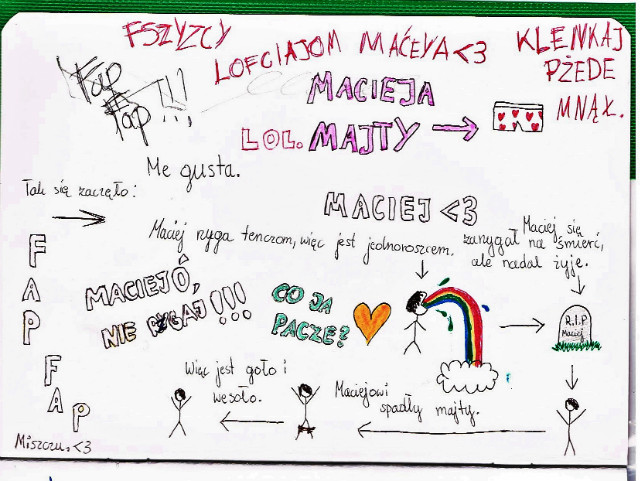 FSZYZCY
LOFCIAJOM MAĆEYA <3
KLENKAJ
PŻEDE
MNĄŁ.
Fap
Fap!!!
MACIEJA
LOL. MAJTY
Me gusta.
Tak się zaczęło:
MACIEJ <3
Maciej rzyga tenczom, więc jest jednoroszcem.
Maciej się
zarzygał na śmierć,
ale nadal żyje.
FAP
FAP
MACIEJÔ,
NIE RZYGAJ!!!
CO JA
PACZE?
R.I.P.
Maciej
Więc jest goło i
wesoło.
Maciejowi
spadły majty.
Miszczu. <3